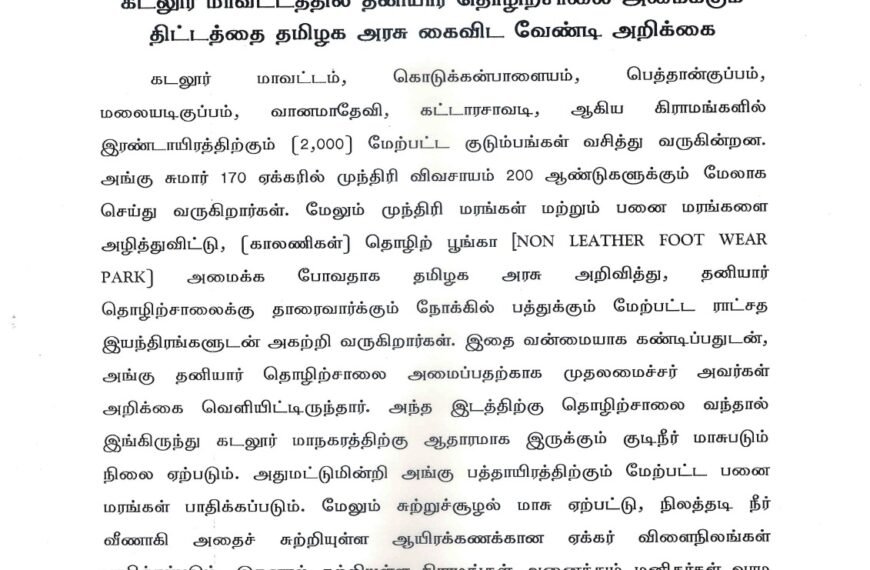 கடலூர் மாவட்டத்தில் தனியார் தொழிற்சாலை அமைக்கும்
திட்டத்தை தமிழக அரசு கைவிட வேண்டி அறிக்கை
கடலூர் மாவட்டம், கொடுக்கன்பாளையம், பெத்தான்குப்பம்,
மலையடிகுப்பம், வானமாதேவி, கட்டாரசாவடி, ஆகிய கிராமங்களில்
இரண்டாயிரத்திற்கும் [2,000] மேற்பட்ட குடும்பங்கள் வசித்து வருகின்றன.
அங்கு சுமார் 170 ஏக்கரில் முந்திரி விவசாயம் 200 ஆண்டுகளுக்கும் மேலாக
செய்து வருகிறார்கள். மேலும் முந்திரி மரங்கள் மற்றும் பனை மரங்களை
அழித்துவிட்டு, [காலணிகள்] தொழிற் பூங்கா [NON LEATHER FOOT WEAR
PARK] அமைக்க போவதாக தமிழக அரசு அறிவித்து, தனியார்
தொழிற்சாலைக்கு தாரைவார்க்கும் நோக்கில் பத்துக்கும் மேற்பட்ட ராட்சத
இயந்திரங்களுடன் அகற்றி வருகிறார்கள். இதை வன்மையாக கண்டிப்பதுடன்,
அங்கு தனியார் தொழிற்சாலை அமைப்பதற்காக முதலமைச்சர் அவர்கள்
அறிக்கை வெளியிட்டிருந்தார். அந்த இடத்திற்கு தொழிற்சாலை வந்தால்
இங்கிருந்து கடலூர் மாநகரத்திற்கு ஆதாரமாக இருக்கும் குடிநீர் மாசுபடும்
நிலை ஏற்படும். அதுமட்டுமின்றி அங்கு பத்தாயிரத்திற்கும் மேற்பட்ட பனை
மரங்கள் பாதிக்கப்படும். மேலும் சுற்றுச்சூழல் மாசு ஏற்பட்டு, நிலத்தடி நீர்
வீணாகி அதைச் சுற்றியுள்ள ஆயிரக்கணக்கான ஏக்கர் விளைநிலங்கள்